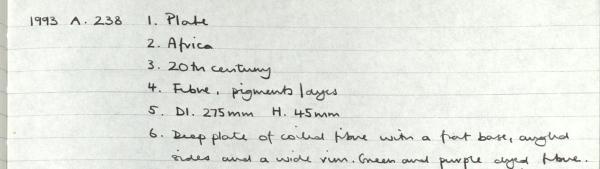 1993 A. 238 1. Plate
2. Africa
3. 20th century
4. Fibre, pigments/dyes
5. DI. 275mm H. 45mm
6. Deep plate of coiled fibre with a flat base, angled
sides and a wide rim. Green and purple dyed fibre.